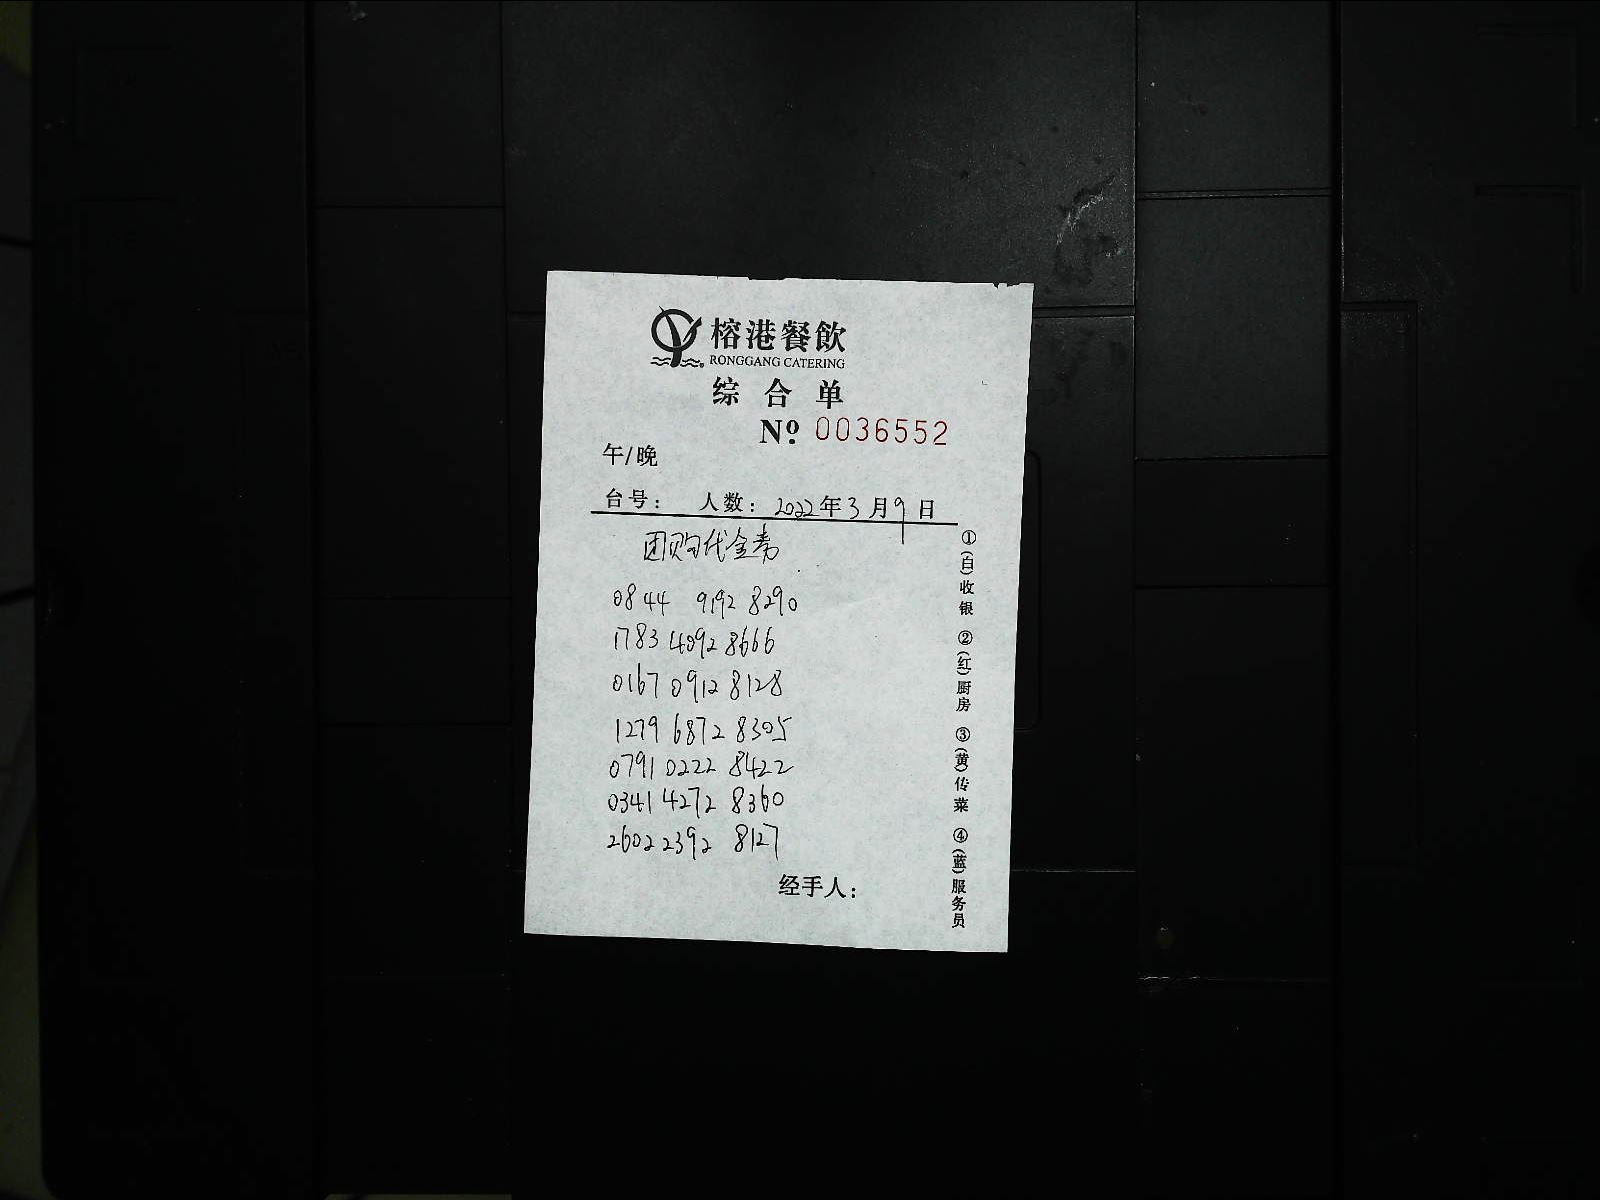 榕港餐飲
RONGGANG CATERING
综合单
Nº 0036552
午/晚
台号: 人数: 2022年3月9日
团购代金券
0844 9192 8290
1783 4092 8666
0167 0912 8128
1279 6872 8305
0791 0222 8422
0341 4272 8360
2602 2392 8127
经手人:
①(白)收银 ②(红)厨房 ③(黄)传菜 ④(蓝)服务员